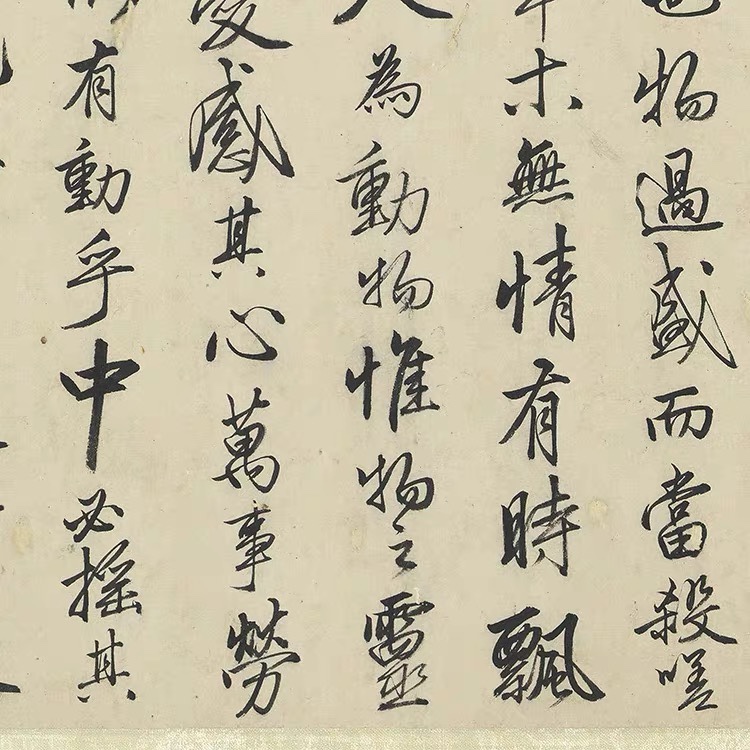 也物過盛而當殺嗟
木無情有時飄
人為動物惟物之靈
憂感其心萬事勞
有動乎中必搖其